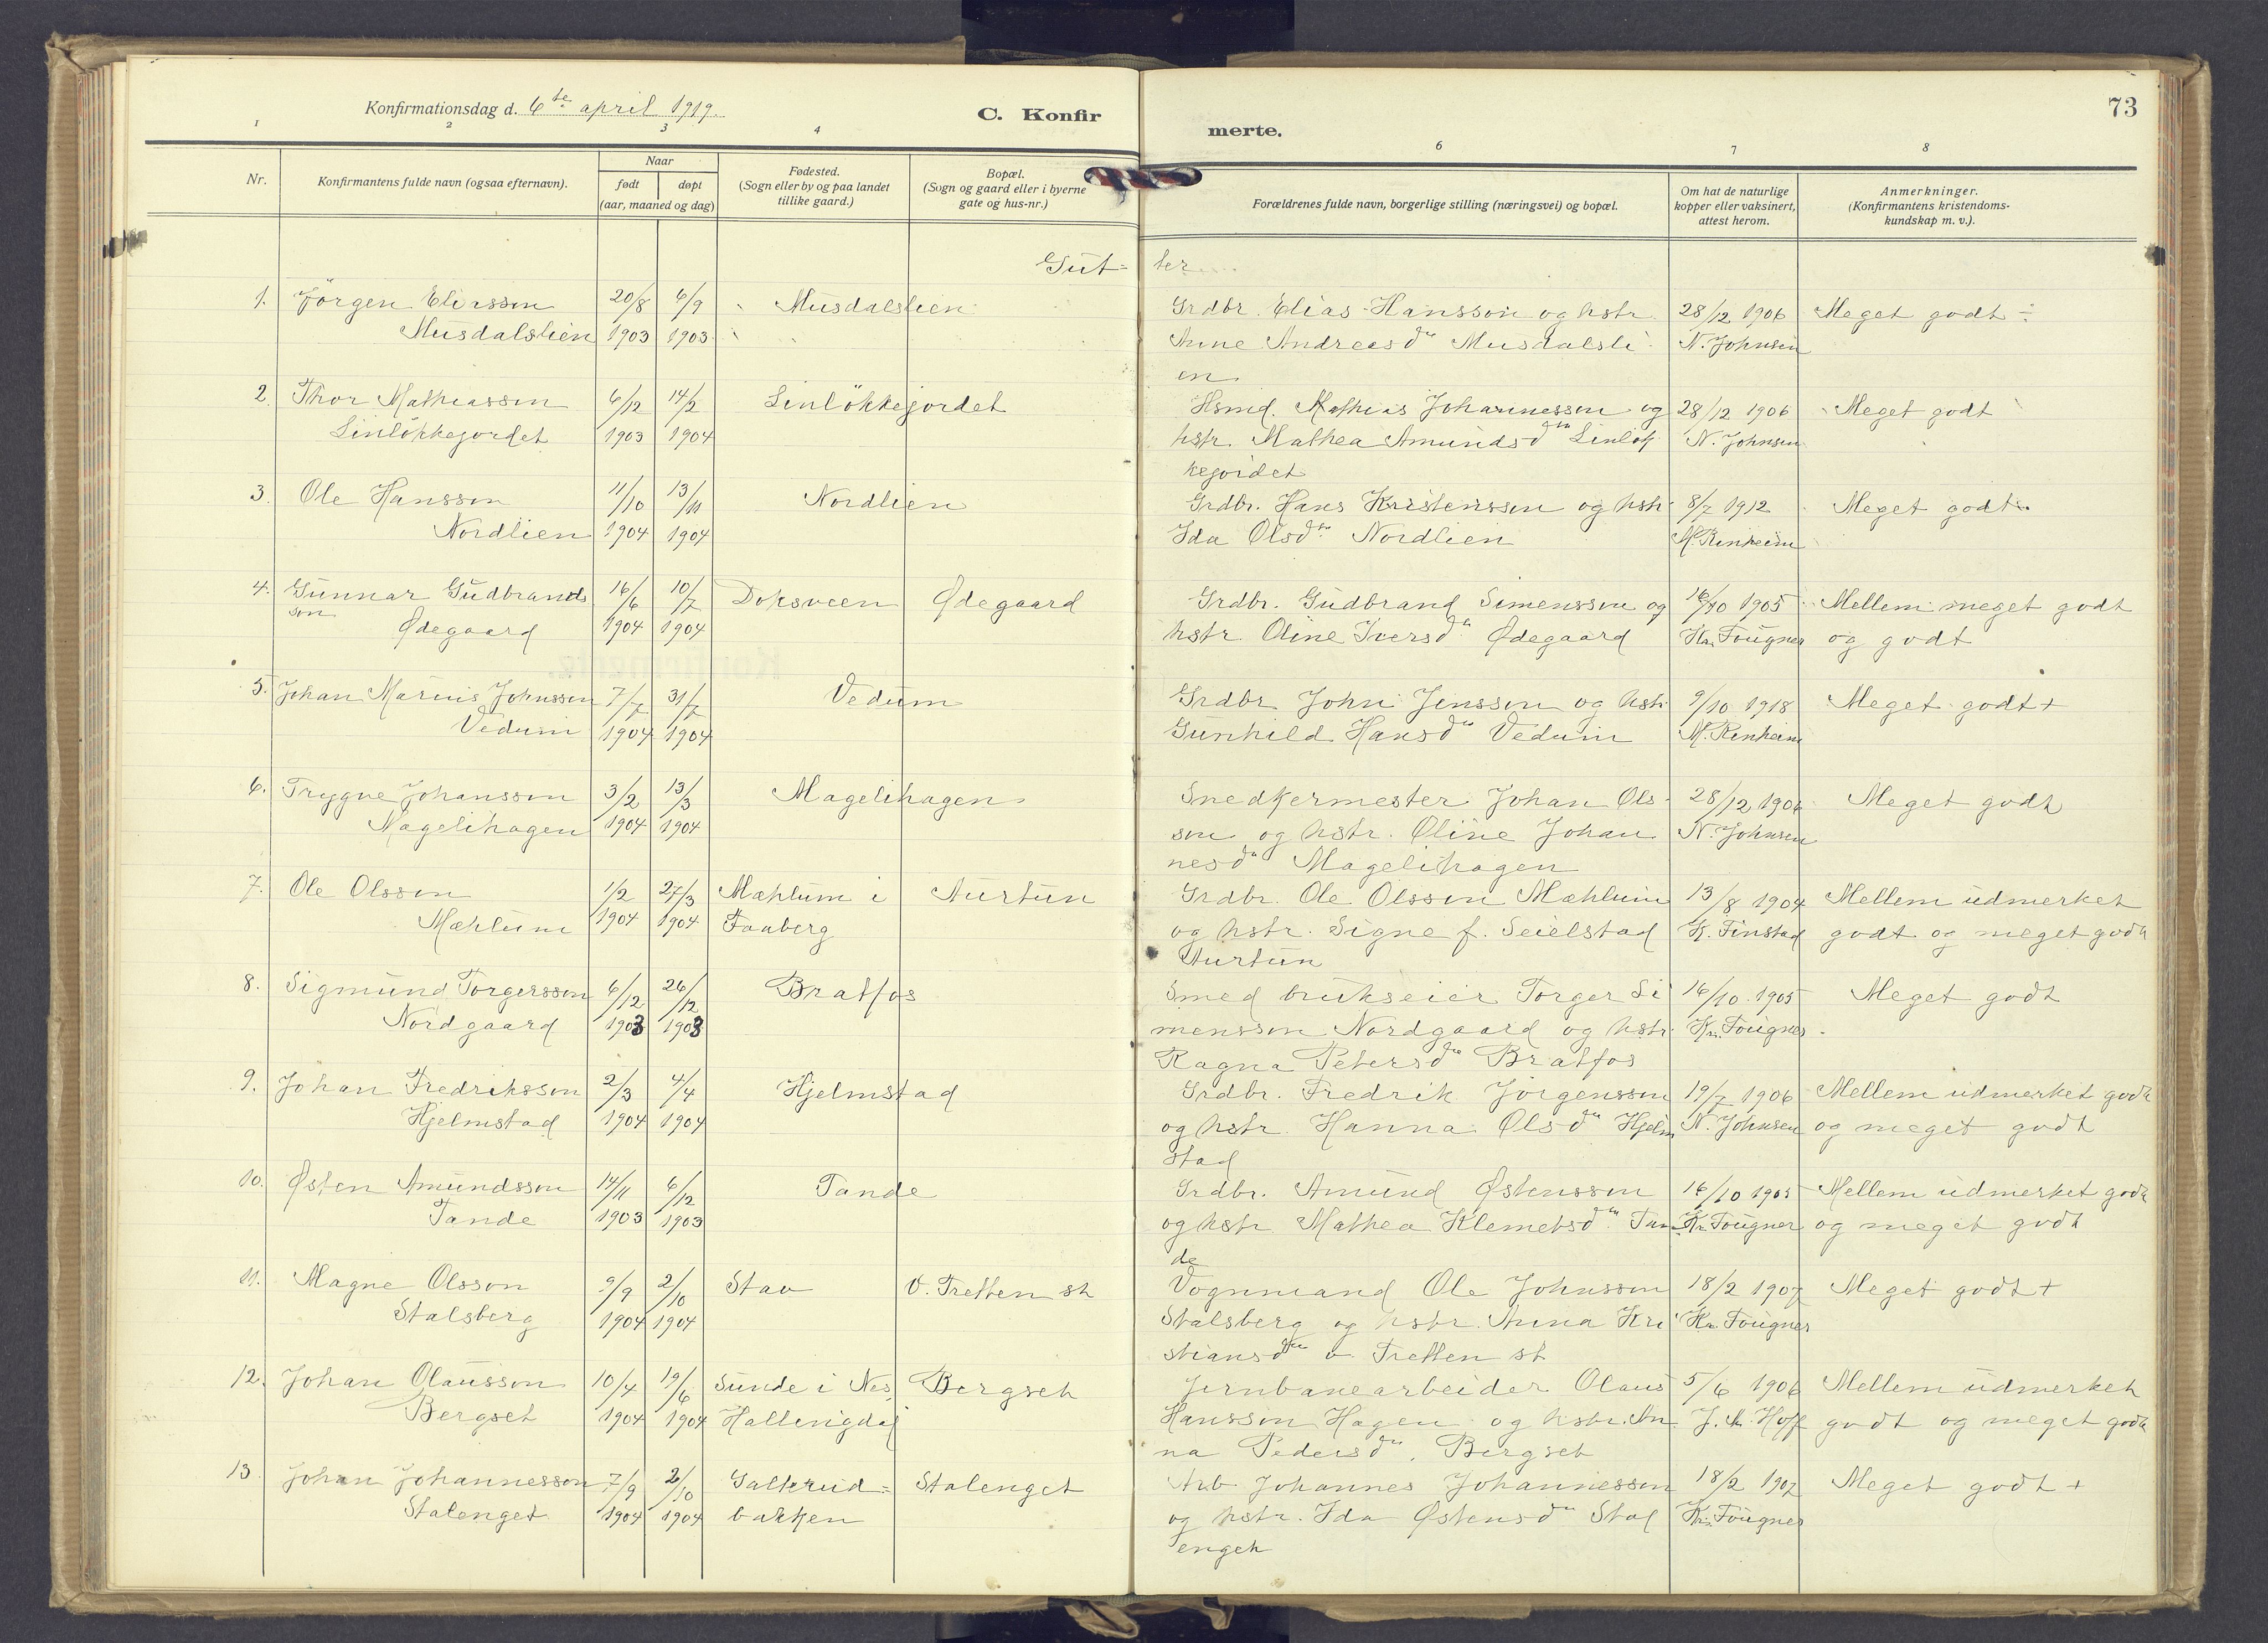 73
Konfirmationsdag d. 6te april 1919.
C. Konfirmerte.
1 2 3 4 6 7 8
Nr.
Konfirmantens fulde navn (ogsaa efternavn).
Naar
født døpt
(aar, maaned og dag)
Fødested.
(Sogn eller by og paa landet
tillike gaard.)
Bopæl.
(Sogn og gaard eller i byerne
gate og hus-nr.)
Forældrenes fulde navn, borgerlige stilling (næringsvei) og bopæl.
Om hat de naturlige
kopper eller vaksinert,
attest herom.
Anmerkninger.
(Konfirmantens kristendoms-
kundskap m. v.).
Gut= ter
1. Jörgen Eliassen 20/8 6/9 Musdalslien Grdbr. Elias Hansson og hstr. 28/12 1906 Meget godt ÷
Musdalslien 1903 1903 Anne Andreasdtr Musdalsli N. Johnsen
en
2. Thor Mathiassen 6/12 14/2 Linlökkejordet Hsmd. Mathias Johannessen og 28/12 1906 Meget godt
Linlökkejordet 1903 1904 hstr. Mathea Amundsdtr Linløk N. Johnsen
kejordet
3. Ole Hanssen 11/10 13/11 Nordlien Grdbr. Hans Kristenssen og hstr 8/7 1912 Meget godt
Nordlien 1904 1904 Ida Olsdtr Nordlien M. Rinheim
4. Gunnar Gudbrands 16/6 10/7 Doksveen Ødegaard Grdbr. Gudbrand Simenssen og 16/10 1905 Mellem meget godt
son
Ødegaard 1904 1904 hstr. Oline Iversdtr Ødegaard Kr. Fougner og godt
5. Johan Marius Johnssen 7/7 31/7 Vedum Grdbr John Jenssen og hstr 9/10 1918 Meget godt +
Vedum 1904 1904 Gunhild Hansdtr Vedum M. Rinheim
6. Trygve Johanssen 3/2 13/3 Magelihagen Snedkermester Johan Ols- 28/12 1906 Meget godt
Magelihagen 1904 1904 sen og hstr. Oline Johan N. Johnsen
nesdtr Magelihagen
7. Ole Olssen 1/2 27/3 Mæhlum i Aurtun Grdbr. Ole Olssen Mæhlum 13/8 1904 Mellem udmerket
Mæhlum 1904 1904 Faaberg og hstr. Signe f. Seielstad K. Finstad godt og meget godt
Aurtun
8. Sigmund Torgerssen 6/12 26/12 Bratfos Smed brukseier Torger Si 16/10 1905 Meget godt
Nordgaard 1903 1903 menssen Nordgaard og hstr. Kr. Fougner
Ragna Petersdtr Bratfos
9. Johan Fredrikssen 2/3 4/4 Hjelmstad Grdbr. Fredrik Jörgenssen 19/7 1906 Mellem udmerket godt
Hjelmstad 1904 1904 og hstr. Hanna Olsdtr Hjelm N. Johnsen og meget godt
stad
10. Østen Amundssen 14/11 6/12 Tande Grdbr. Amund Østenssen 16/10 1905 Mellem udmerket godt
Tande 1903 1903 og hstr. Mathea Klemetsdtr Tan Kr. Fougner og meget godt
de
11. Magne Olsson 9/9 2/10 Stav v. Tretten st Vognmand Ole Johnssen 18/2 1907 Meget godt +
Stalsberg 1904 1904 Stalsberg og hstr. Anna Kri Kr. Fougner
stiansdtr v. Tretten st
12. Johan Olaussen 10/4 19/6 Sunde i Nes Bergset Jernbanearbeider Olaus 5/6 1906 Mellem udmerket
Bergset 1904 1904 Hallingdal Hanssen Hagen og hstr. An J. A. Hoff godt og meget godt
na Pedersdtr. Bergset
13. Johan Johannessen 7/9 2/10 Galterud= Stalenget Arb Johannes Johannessen 18/2 1907 Meget godt +
Stalenget 1904 1904 bakken og hstr. Ida Østensdtr Stal Kr. Fougner
enget